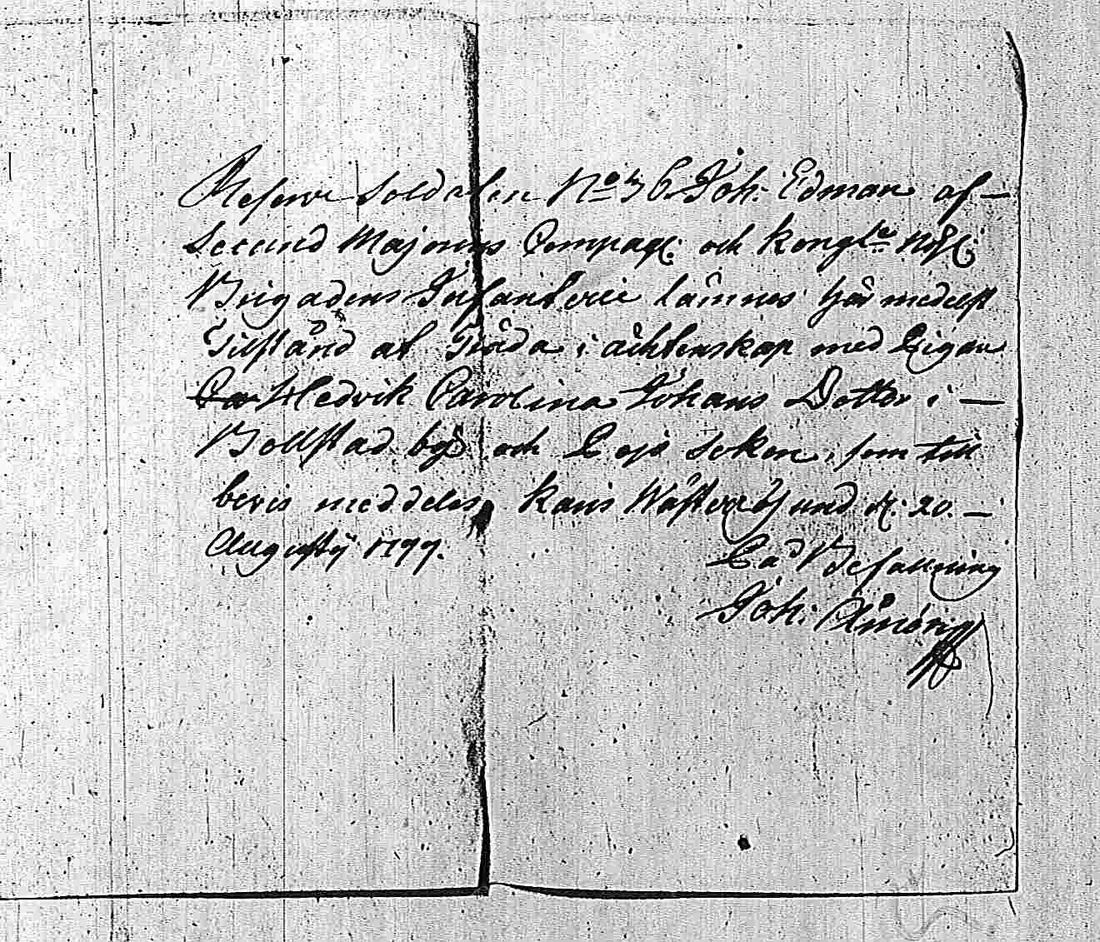 Reserv Soldaten No 36. Joh: Edman af —
Secund Majorens Compag: och Kongl:e
Brigadens Infanterie lämnes här medelst
Tilstånd at Träda i äcktenskap med Pigan
Hedvik Carolina Johans Dotter i —
Bollstad by och Sokn, som till
bevis meddeles, und d: 20. —
Augusty 1799.
På Befallning
Joh: